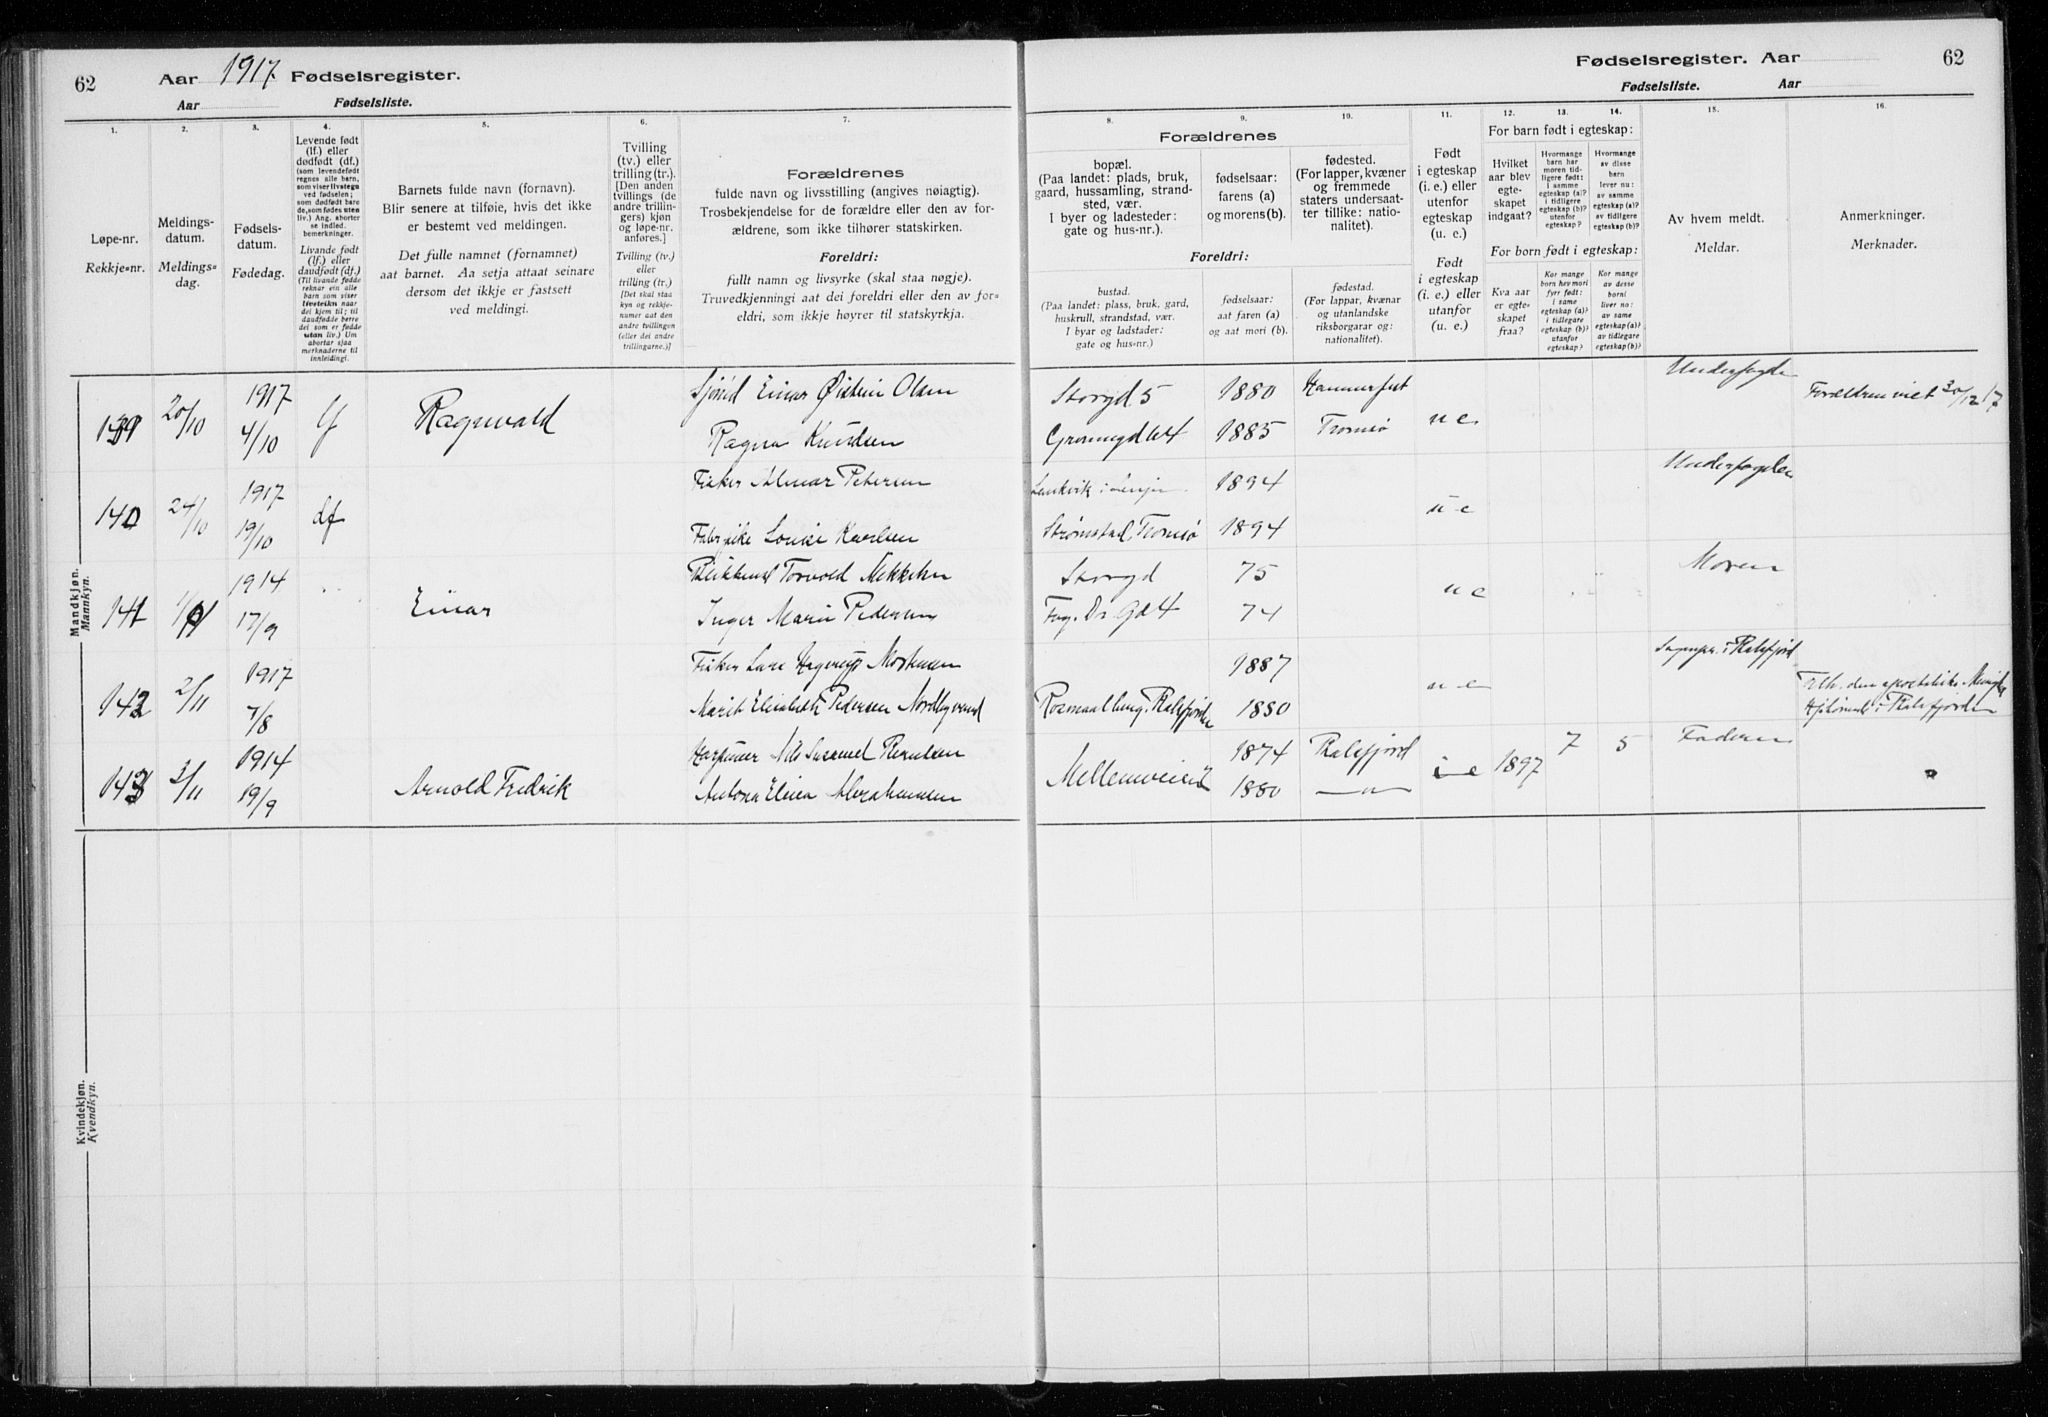 62
Aar 1917 Fødselsregister.
Aar Fødselsliste.
Fødselsregister. Aar
62
Fødselsliste. Aar
1.
Løpe-nr.
Rekkje-nr.
2.
Meldings-
datum.
Meldings-
dag.
3.
Fødsels-
datum.
Fødedag.
4.
Levende født
(lf.) eller
dødfødt (df.)
(som levendefødt
regnes alle barn,
som viser livstegn
ved fødselen;
som dødfødt bare
de, som fødes uten
liv.) Ang. aborter
se indled.
bemerkninger.
Livande født
(lf.) eller
daudfødt (df.)
(Til livande fødde
reknar ein alle
born som viser
livsteikn naar
dei kjem til; til
daudfødde berre
dei som er fødde
utan liv.) Um
abortar sjaa
merknaderne til
innleidingi.
5.
Barnets fulde navn (fornavn).
Blir senere at tilføie, hvis det ikke
er bestemt ved meldingen.
Det fulle namnet (fornamnet)
aat barnet. Aa setja attaat seinare
dersom det ikkje er fastsett
ved meldingi.
6.
Tvilling
(tv.) eller
trilling (tr.).
[Den anden
tvillings (de
andre trillin-
gers) kjøn
og løpe-nr.
anføres.]
Tvilling (tv.)
eller
trilling (tr.)
[Det skal staa
kyn og rekkje-
numer aat den
andre tvillingen
(eller dei andre
trillingarne.)]
7.
Forældrenes
fulde navn og livsstilling (angives nøiagtig).
Trosbekjendelse for de forældre eller den av for-
ældrene, som ikke tilhører statskirken.
Foreldri:
fullt namn og livsyrke (skal staa nøgje).
Truvedkjenningi aat dei foreldri eller den av for-
eldri, som ikkje høyrer til statskyrkja.
Forældrenes
8.
bopæl.
(Paa landet: plads, bruk,
gaard, hussamling, strand-
sted, vær.
I byer og ladesteder:
gate og hus-nr.).
9.
fødselsaar:
farens (a)
og morens (b).
10.
fødested.
(For lapper, kvæner
og fremmede
staters undersaat-
ter tillike: natio-
nalitet).
Foreldri:
bustad.
(Paa landet: plass, bruk, gard,
huskrull, strandstad, vær.
I byar og ladstader:
gate og hus-nr.)
fødselsaar:
aat faren (a)
og aat mori (b).
fødestad.
(For lappar, kvænar
og utanlandske
riksborgarar og:
nationalitet).
11.
Født
i egteskap
(i. e.) eller
utenfor
egteskap
(u. e.)
Født
i egteskap
(i. e.) eller
utanfor
(u. e.)
12. 13. 14.
For barn født i egteskap:
Hvilket
aar blev
egte-
skapet
indgaat?
Hvormange
barn har
moren tid-
ligere født:
i samme
egteskap (a)?
i tidligere
egteskap (b)?
utenfor
egteskap?
Hvormange
av disse
barn
lever nu:
av samme
egteskap (a)?
av tidligere
egteskap (b)?
For born født i egteskap:
Kva aar
er egte-
skapet
fraa?
Kor mange
born hev mori
fyrr født:
i same
egteskap (a)?
i tidlegare
egteskap (b)?
utanfor
egteskap?
Kor mange
av desse
borni
liver no:
av same
egteskap (a)?
av tidlegare
egteskap (b)?
15.
Av hvem meldt.
Meldar.
16.
Anmerkninger.
Merknader.
Mandkjøn.
Mannkyn.
139 20/10 1917 4/10 lf Ragnvald
Einar Øistein Olsen Storgd 5 1880 Hammerfest
Ragna Knudsen Grønnegd 64 1885 Tromsø
u e
Forældrene viet 30/12 17
140 24/10 1917 19/10 df
Fisker Almar Petersen 1894
Fabrpike Louise Karlsen Strømstad, Tromsø 1894
u e
141 1/11 1914 17/9 Einar
Torvald Storgd 75
Inger Marie Pedersen Gd 4 74
u e Moren
142 2/11 1917 7/8
Fisker Lars Hagerup Mortensen 1887
Marit Elisabeth Pedersen 1880
u e
i Balsfjord
143 3/11 1914 19/9 Arnold Fredrik
Nils Berntsen 1874 Balsfjord
Antona Elina Abrahamsen 1880 —〃—
i e 1897 7 5 Faderen
Kvindekjøn.
Kvendkyn.